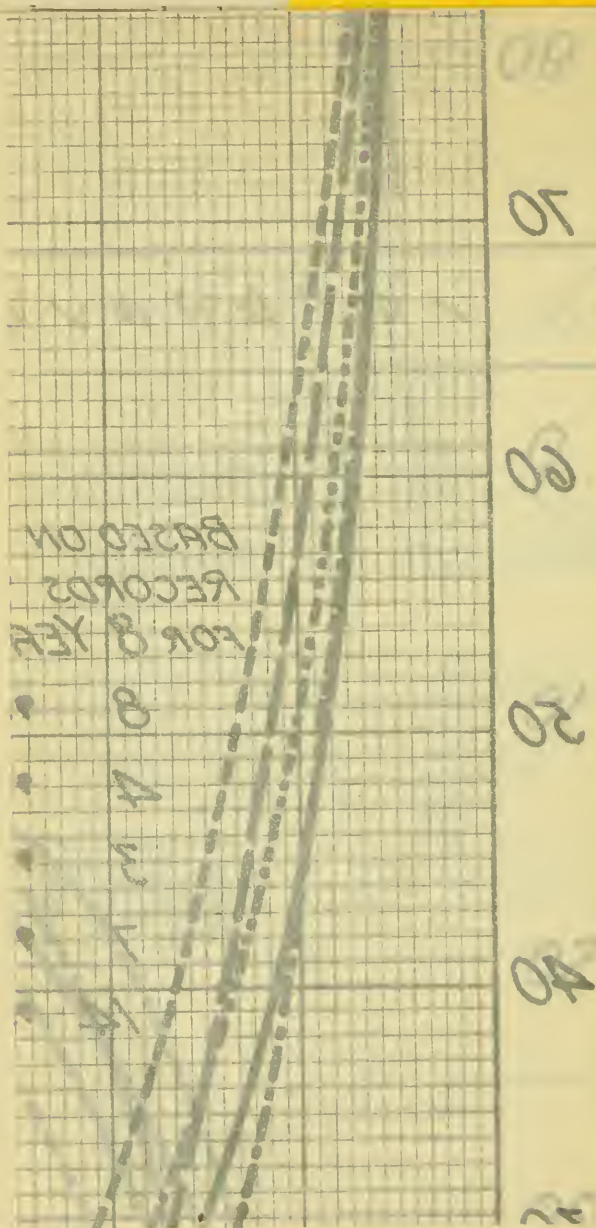 80
70
60
BASED ON
RECORDS
FOR 8 YEA
8
50
4
3
40